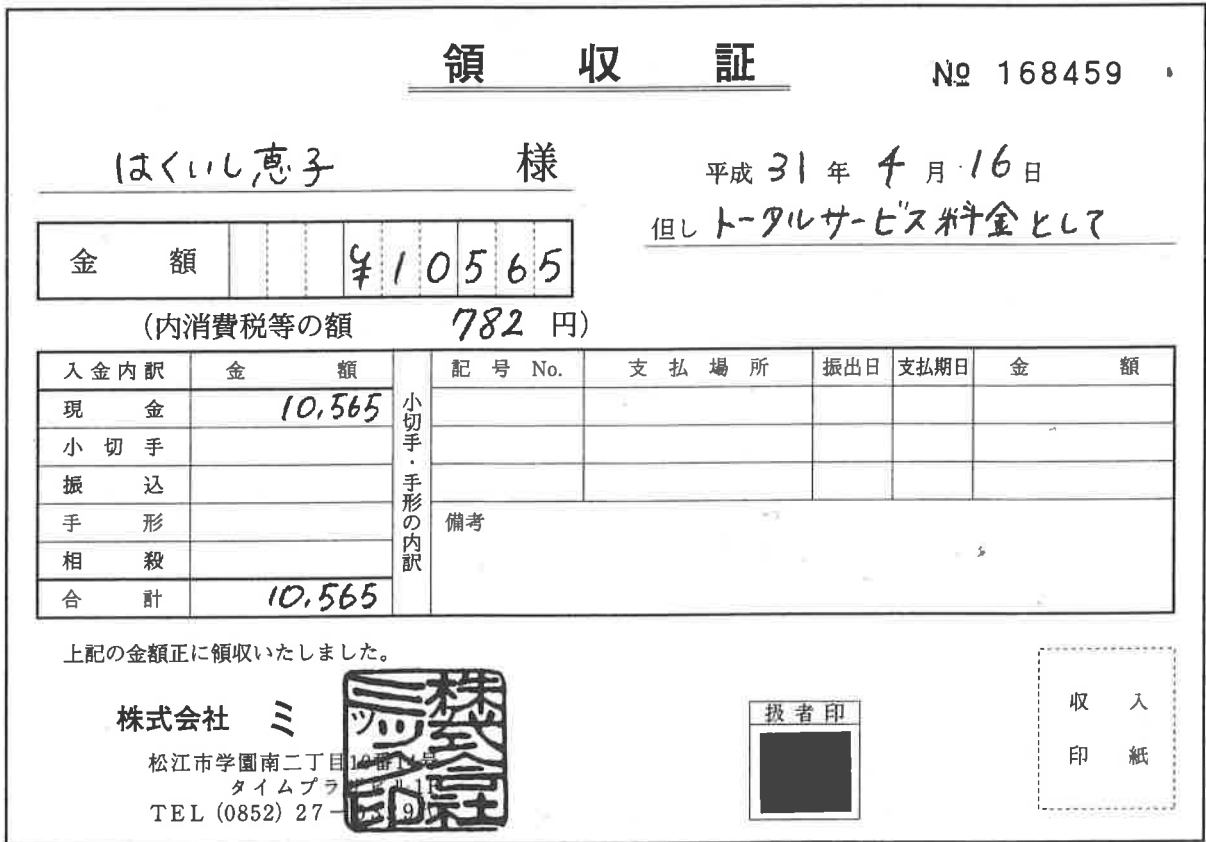 領収証
№ 168459
はくいし恵子 様
平成 31 年 4 月 16 日
但し トータルサービス料金として
金額 ¥10565
(内消費税等の額 782 円)
入金内訳 金額
現金 10,565
小切手
振込
手形
相殺
合計 10,565
小切手・手形の内訳
記号 No. 支払場所 振出日 支払期日 金額
備考
上記の金額正に領収いたしました。
株式会社 ミ
松江市学園南二丁目
タイムプラ
TEL (0852) 27-
株式会社
ミック印
扱者印
収入
印紙